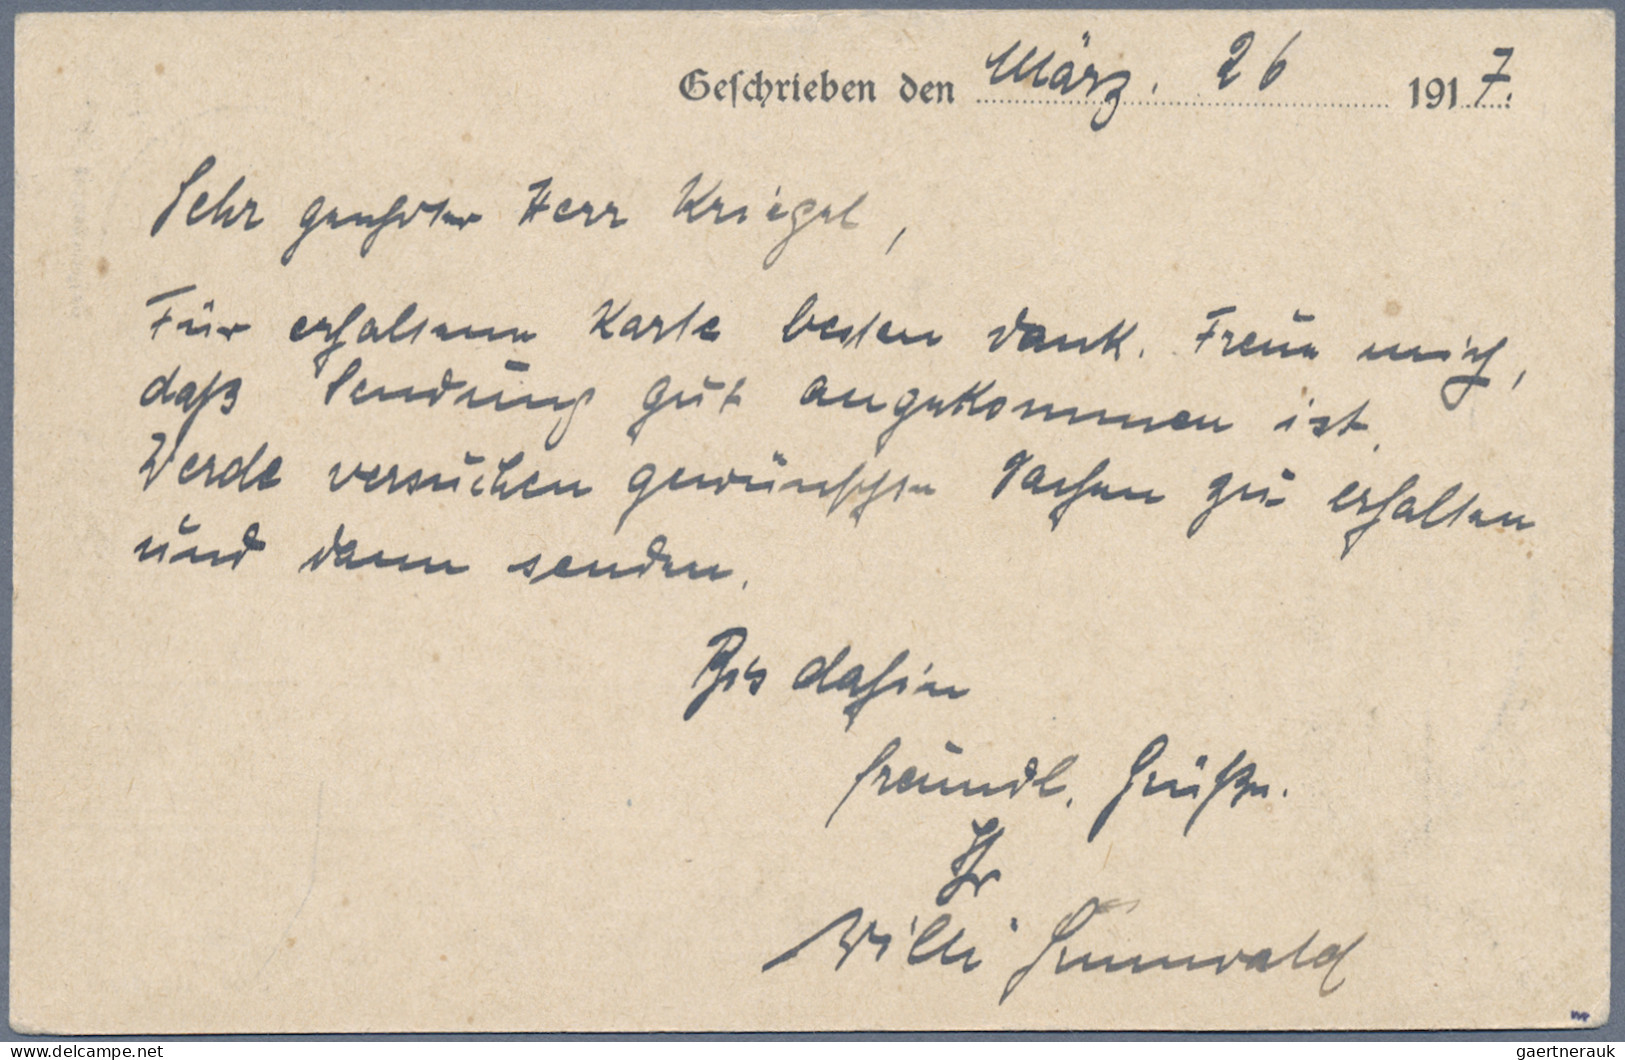 Geschrieben den März. 26 1917.
Sehr geehrter Herr Kriegel,
Für erhaltene Karte besten Dank. Freue mich,
daß Sendung gut angekommen ist.
Werde versuchen gewünschte Sachen zu erhalten
und dann senden.
Bis dahin
freundl. Grüße.
Ihr
Willi Grunwald
delcampe.net
gaertnerauk